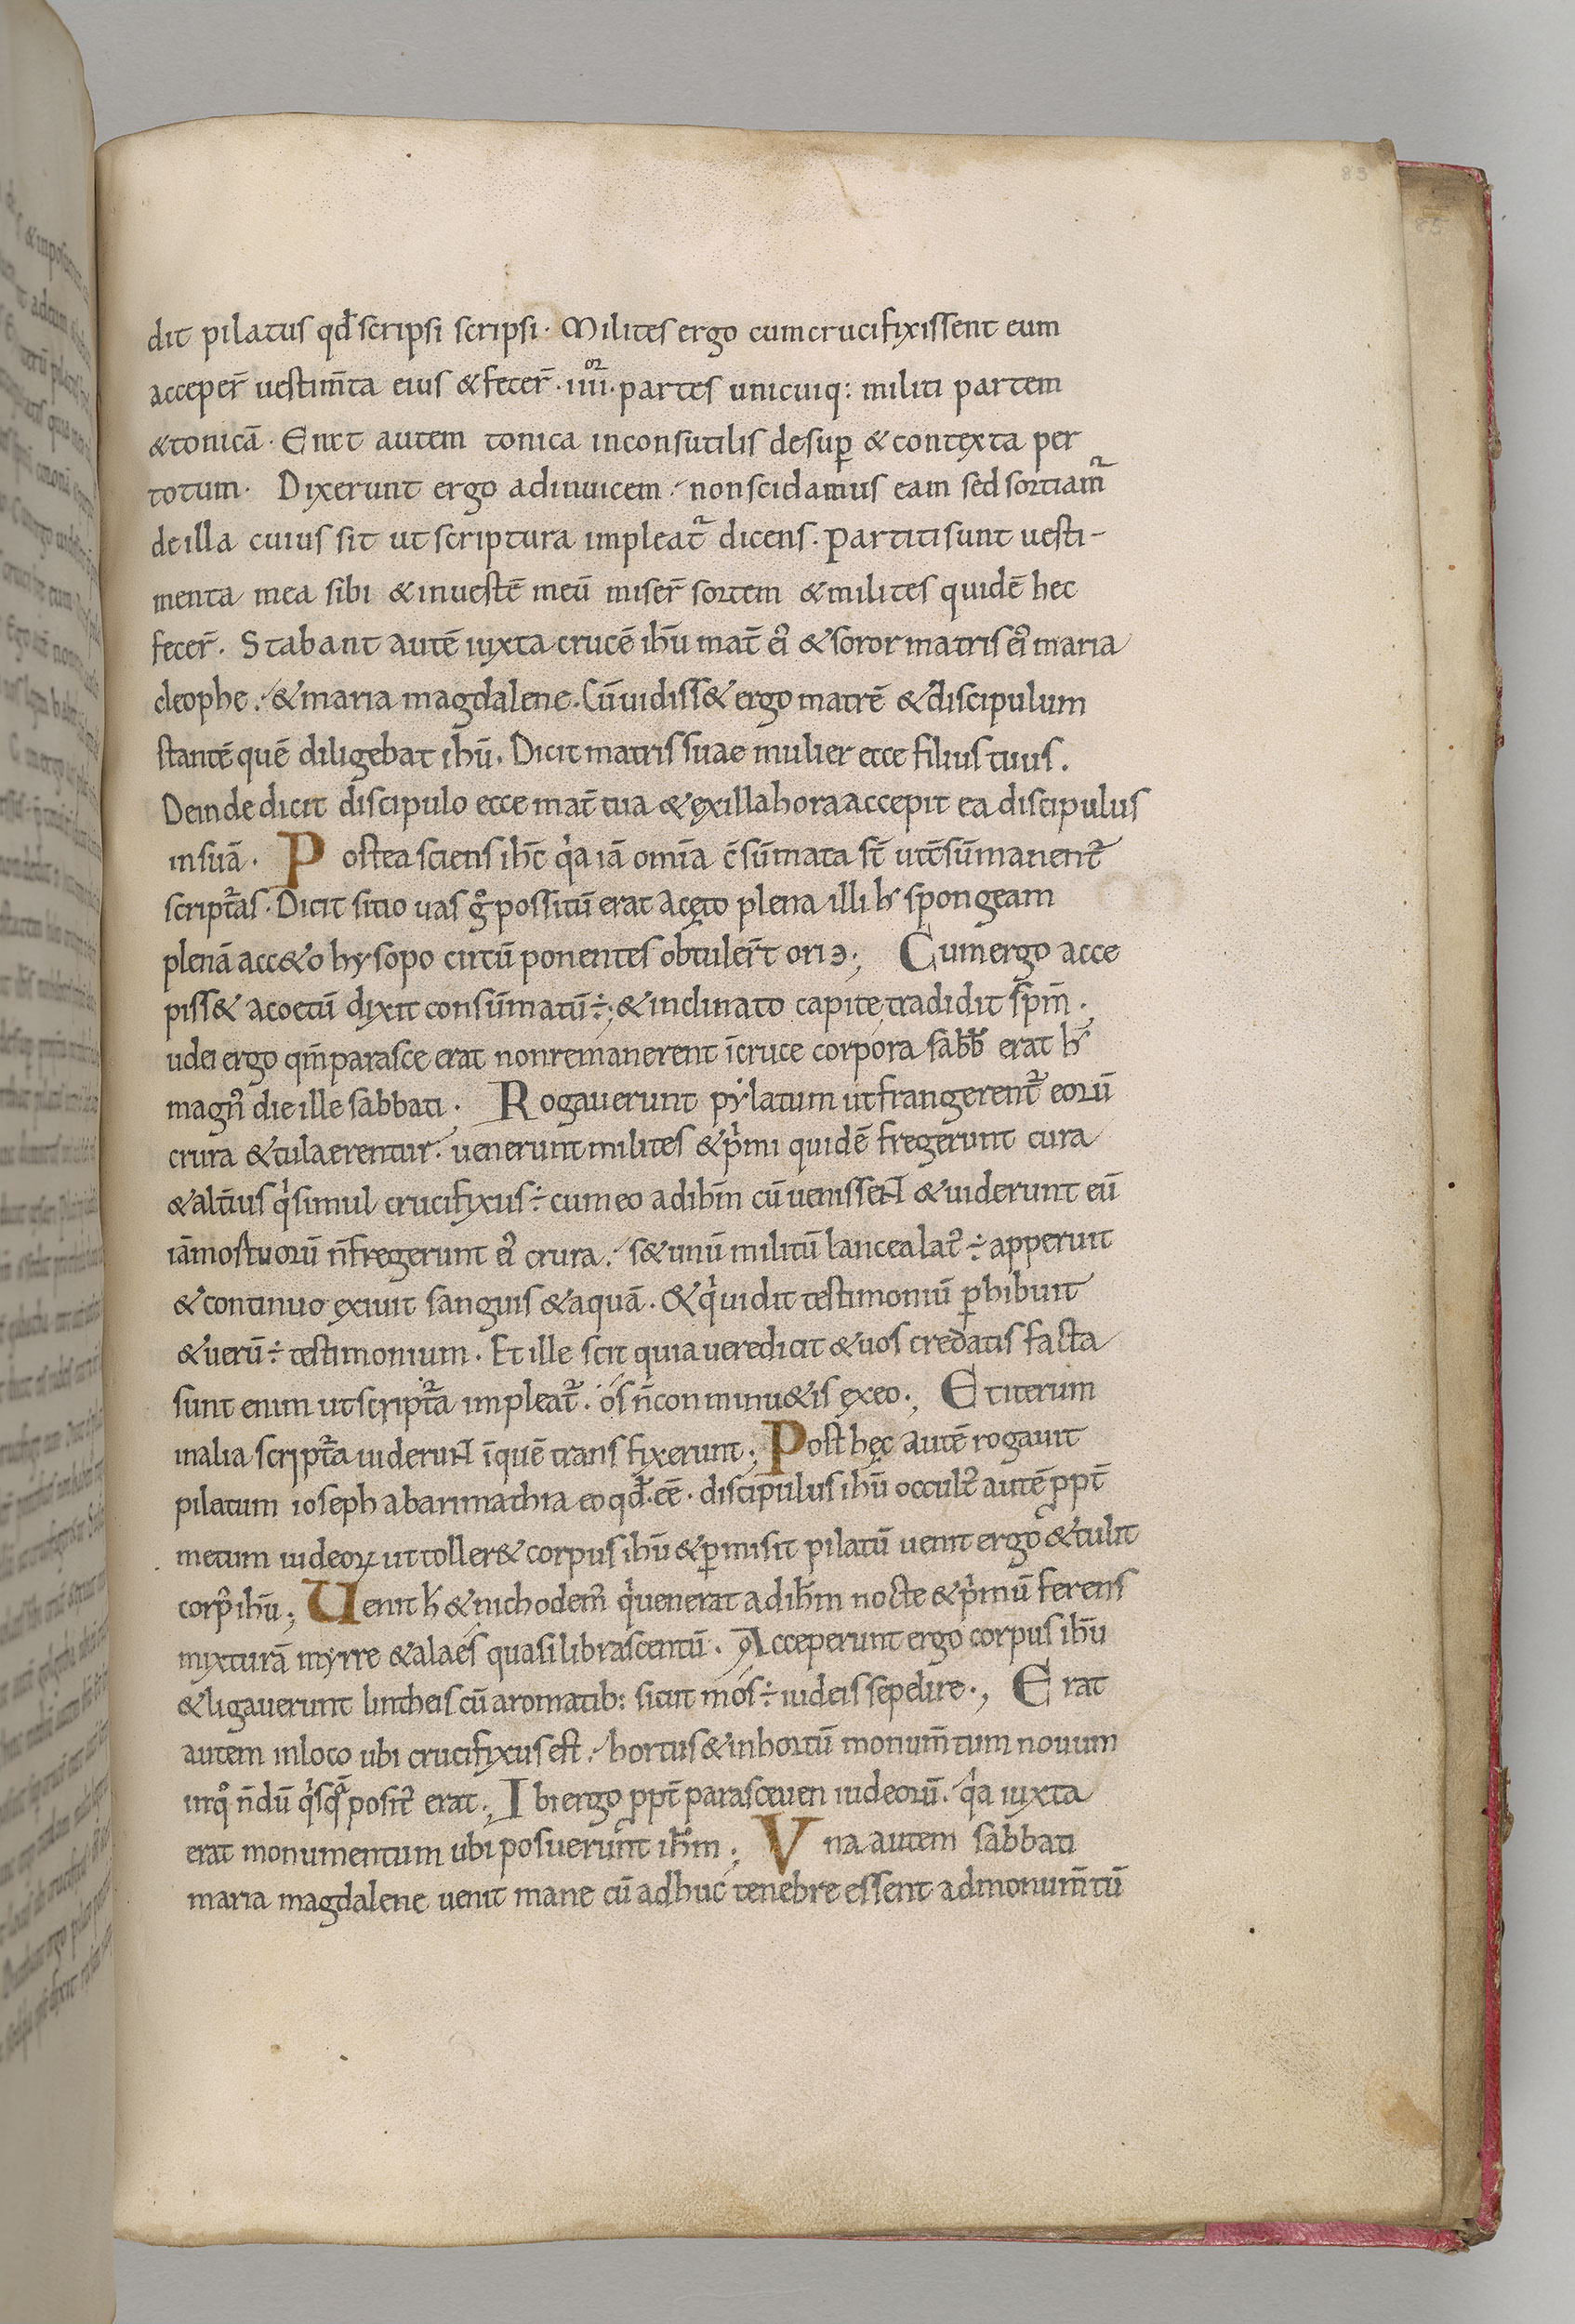 83
85
dit pilatus qđ scripsi scripsi · Milites ergo cum crucifixissent eum
acceper̄ uestim̄ta eius & fecer̄ · iiiior · partes unicuiq: militi partem
& tonicā · Erat autem tonica inconsutilis desuꝑ & contexta per
totum · Dixerunt ergo adinuicem non scidamus eam sed sortiamr̃
de illa cuius sit ut scriptura impleatr̃ dicens . Partiti sunt uesti-
menta mea sibi & in uestē meū miser̄ sortem & milites quidē hec
fecer̄ . Stabant autē iuxta crucē ihū mat̄ eꝰ & soror matris eꝰ maria
cleophe . & maria magdalene . Cū uidiss& ergo matrē & discipulum
stantē quē diligebat ihū . Dicit matris suae mulier ecce filius tuus .
Deinde dicit discipulo ecce mat̄ tua & ex illa hora accepit ea discipulus
in suā . Postea sciens ihc̄ qⁱa iā om̄ia c̄sūmata st̄ ut c̄sūmanent᷑
script᷑as . Dicit sitio uas gͦ possitū erat acęto plena illi h̵ spongeam
plenā acc&o hysopo circū ponentes obtuler̄t ori ɔ ; Cum ergo acce
piss& acoetū dixit consūmatū ÷ ; & inclinato capite tradidit sp̄m .
udei ergo qm̄ parasce erat non remanerent ī cruce corpora sabb̄ erat h̵
magnꝰ die ille sabbati . Rogauerunt pẏlatum ut frangerent᷑ eorū
crura & tulaerentur . uenerunt milites & pⁱmi quidē fregerunt cura
& alt̄ius qⁱ simul crucifixus ÷ cum eo ad ihm̄ cū uenissent & uiderunt eū
iā mostuorū n̄ fregerunt eꝰ crura . s& unū militū lancea latꝰ ÷ apperuit
& continuo exiuit sanguis & aquā . & qⁱ uidit testimoniū ꝑhibuit
& uerū ÷ testimonium . Et ille scit quia uere dicit & uos credatis facta
sunt enim ut script᷑a impleat᷑ . os n̄ conminu&is exeo . ; Et iterum
in alia script᷑a uiderunt ī quē transfixerunt ; Post hęc autē rogauit
pilatum ioseph ab arimathia eo qđ . eē . discipulus ihū occultꝰ autē ꝓpt̄
metum iudeoꝝ ut toller& corpus ihū & ꝑmisit pilatū uenit ergo & tulit
corpꝰ ihū ; Uenit h̵ & nichodemꝰ qⁱ uenerat ad ihm̄ nocte & pⁱmū ferens
mixturā myrre & alaes quasi libras centū . Acceperunt ergo corpus ihū
& ligauerunt lintheis cū aromatib: sicut mos ÷ iudeis sepelire . ; Erat
autem in loco ubi crucifixus est . hortus & in hortū monum̄tum nouum
in qͦ n̄dū qⁱsqᵃ positꝰ erat . ; Ibi ergo ꝓpt̄ parasceuen iudeorū . qⁱa iuxta
erat monumentum ubi posuerunt ihm̄ ; Vna autem sabbati
maria magdalene uenit mane cū adhuc tenebre essent ad monum̄tū